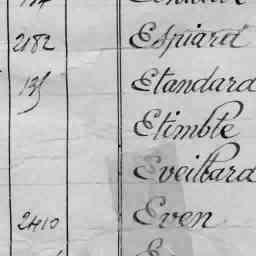 2182 Espiard
Etandard
Etimble
Eveillard
2410 Even